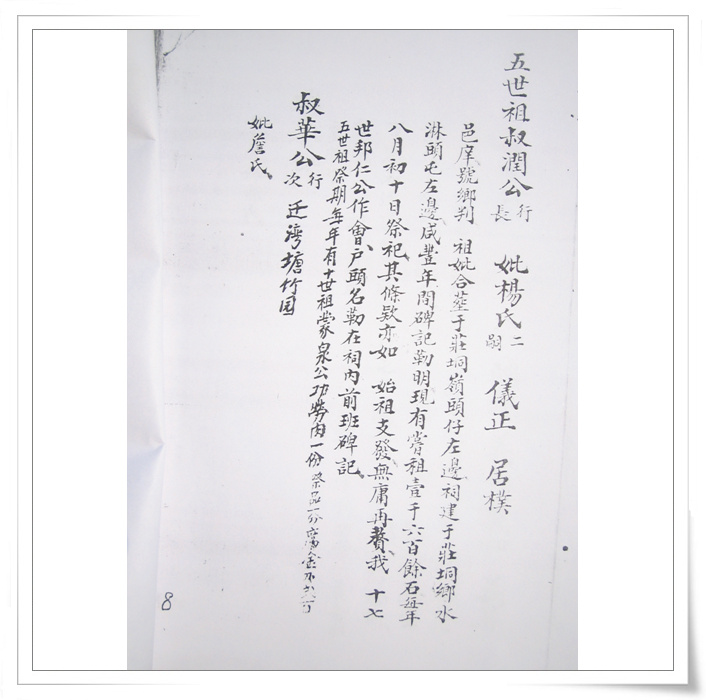 五世祖叔潤公 行長 妣楊氏 二嗣 儀正 居樸
邑庠號鄉判 祖妣合塟于莊垌嶺頭仔左邊祠建于莊垌鄉水
淋頭屯左邊咸豐年間碑記勒明現有嘗祖壹千六百餘石每年
八月初十日祭祀其條欵亦如 始祖支發無庸再贅我 十七
世邦仁公作會戶頭名勒在祠內前班碑記
五世祖祭期每年有十世祖蒙泉公功勞肉一份祭品一分
叔華公 行次 迁灣塘竹园
妣詹氏
8